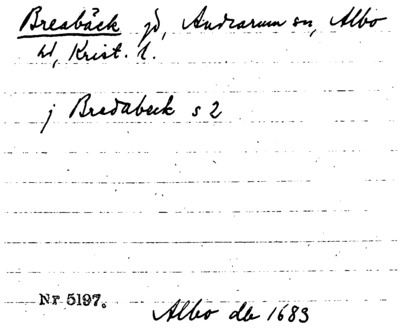 Breabäck gd, Andrarum sn, Albo
hd, Krist. l.
j Bredabeck s 2
Nr 5197.
Albo db 1683